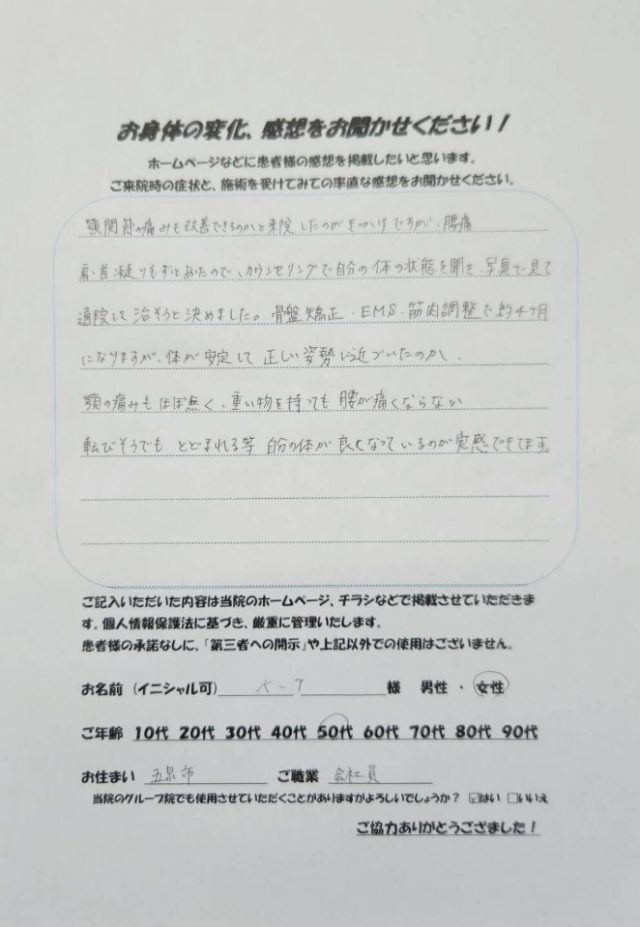 お身体の変化、感想をお聞かせください！
ホームページなどに患者様の感想を掲載したいと思います。
ご来院時の症状と、施術を受けてみての率直な感想をお聞かせください。
顎関節の痛みも改善できるのかと来院したのがきっかけですが、腰痛
肩・首凝りもずとあったので、カウンセリングで自分の体の状態を聞き、写真で見て
通院して治そうと決めました。骨盤矯正・EMS・筋肉調整で約4ヶ月
になりますが、体が安定して正しい姿勢に近づいたのか、
顎の痛みもほぼ無く、重い物を持っても腰が痛くならないか
転びそうでもとどまれる等 自分の体が良くなっているのが実感できてます。
ご記入いただいた内容は当院のホームページ、チラシなどで掲載させていただきま
す。個人情報保護法に基づき、厳重に管理いたします。
患者様の承諾なしに、「第三者への開示」や上記以外での使用はございません。
お名前（イニシャル可） 様 男性 ・ 女性
ご年齢 10代 20代 30代 40代 50代 60代 70代 80代 90代
お住まい 五泉市 ご職業 会社員
当院のグループ院でも使用させていただくことがありますがよろしいでしょうか？ ☑はい □いいえ
ご協力ありがとうございました！